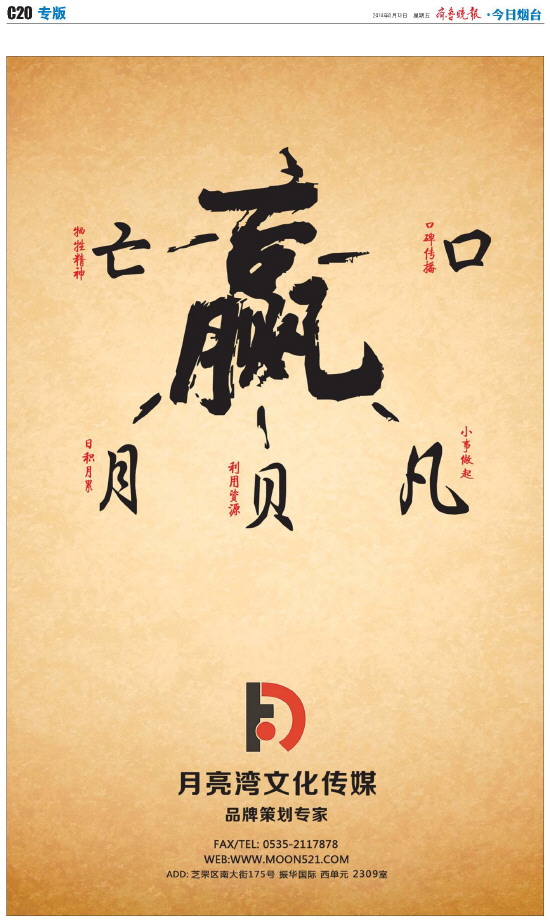 C20 专版
星期五 齐鲁晚报·今日烟台
赢
亡
牺牲精神
口
口碑传播
月
日积月累
贝
利用資源
凡
小事做起
月亮湾文化传媒
品牌策划专家
FAX/TEL: 0535-2117878
WEB:WWW.MOON521.COM
ADD: 芝罘区南大街175号 振华国际 西单元 2309室